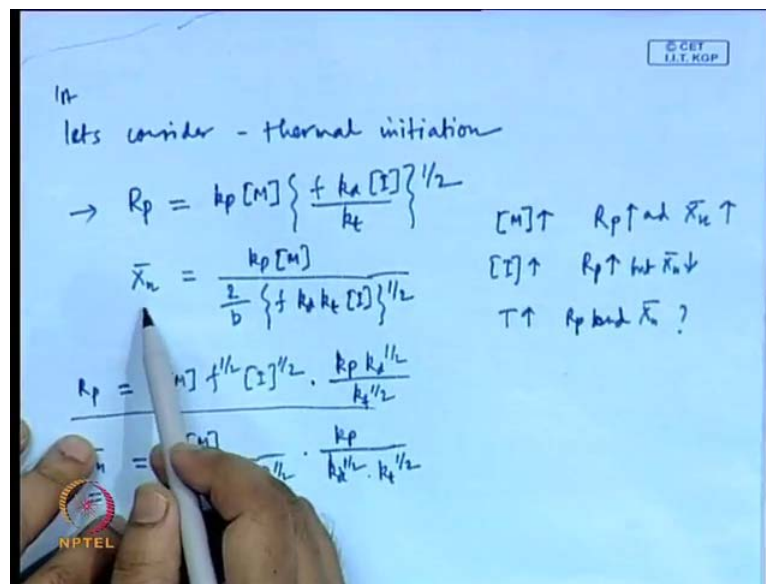 © CET
I.I.T. KGP
In
lets consider - thermal initiation
→ Rp = kp [M] { f kd [I] / kt }^1/2
X̄n = kp [M] / 2/b { f kd kt [I] }^1/2
[M]↑ Rp↑ ad X̄n ↑
[I]↑ Rp↑ but X̄n↓
T↑ Rp and X̄n ?
Rp = [M] f^1/2 [I]^1/2 . kp kd^1/2 / kt^1/2
= . kp / kd^1/2 . kt^1/2
NPTEL